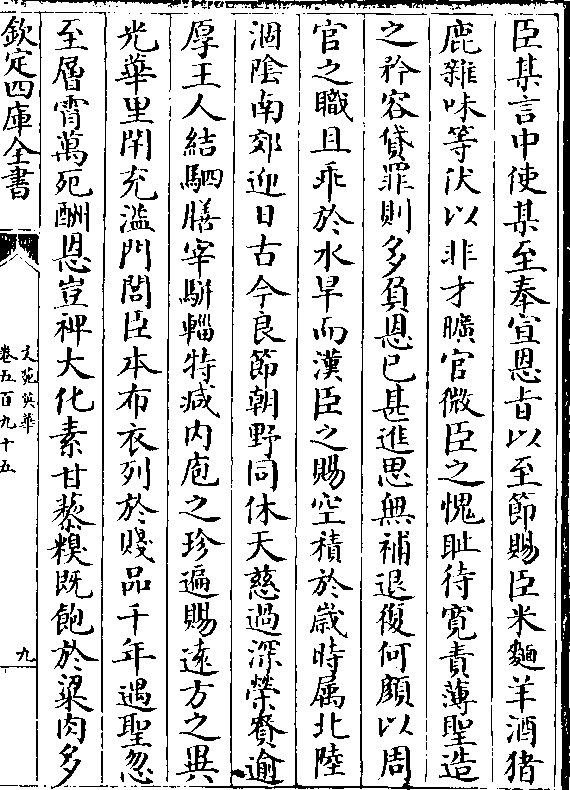 臣某言中使某至奉宣恩旨以至節賜臣米麵羊酒猪
鹿雜味等伏以非才曠官微臣之愧耻待寛責薄聖造
之矜容貸罪則多負恩已甚進思無補退復何顔以周
官之職且乖於水旱而漢臣之賜空積於歳時属北陸
涸陰南郊迎日古今良節朝野同休天慈過深榮賚逾
厚王人結駟膳宰駢輜特减内庖之珍遍賜逺方之異
光華里閈充溢門閭臣本布衣列於賤品千年遇聖忽
至層霄萬死酬恩豈裨大化素甘藜糗既飽於粱肉多
欽定四庫全書
文苑英華
卷五百九十五
九